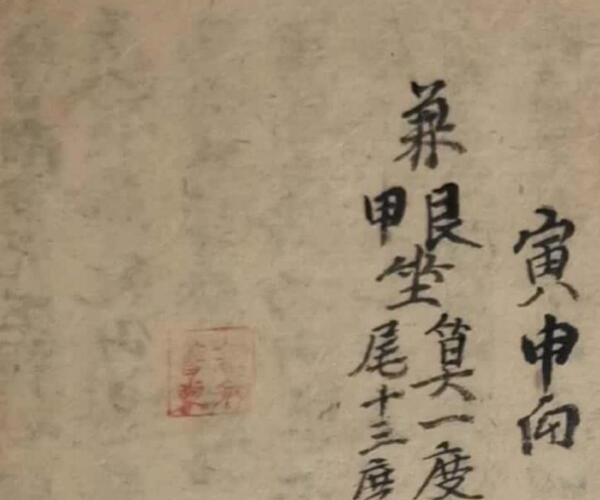 寅申向
兼
艮
甲
坐
箕一度
尾十三度